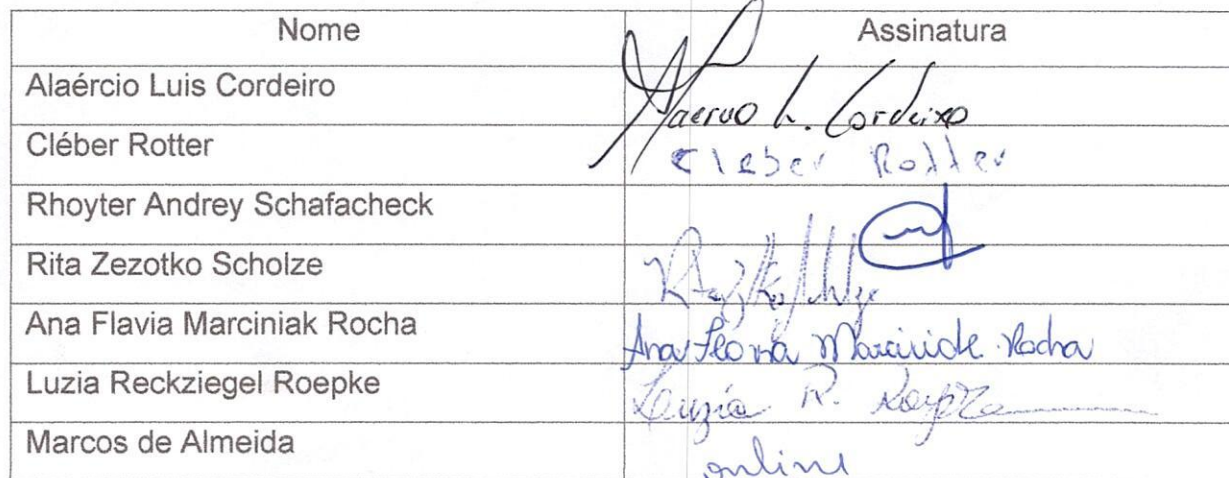 Nome Assinatura
Alaércio Luis Cordeiro Alaercio L. Cordeiro
Cléber Rotter Cleber Rotter
Rhoyter Andrey Schafacheck
Rita Zezotko Scholze
Ana Flavia Marciniak Rocha Ana Flavia Marciniak Rocha
Luzia Reckziegel Roepke Luzia R. Roepke
Marcos de Almeida online